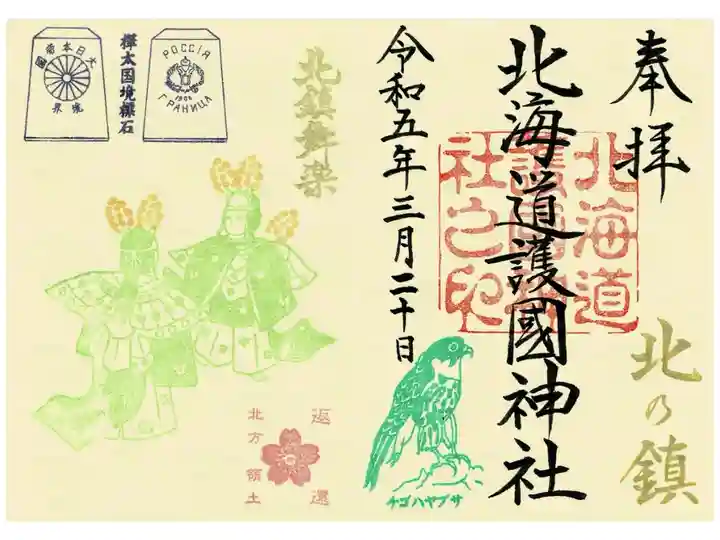 奉拝
北の鎮
北海道護國神社
北海道
護國神
社之印
令和五年三月二十日
チゴハヤブサ
北鎮舞楽
返還
北方領土
РОССІЯ
1906
ГРАНИЦА
樺太国境標石
大日本帝國
境界